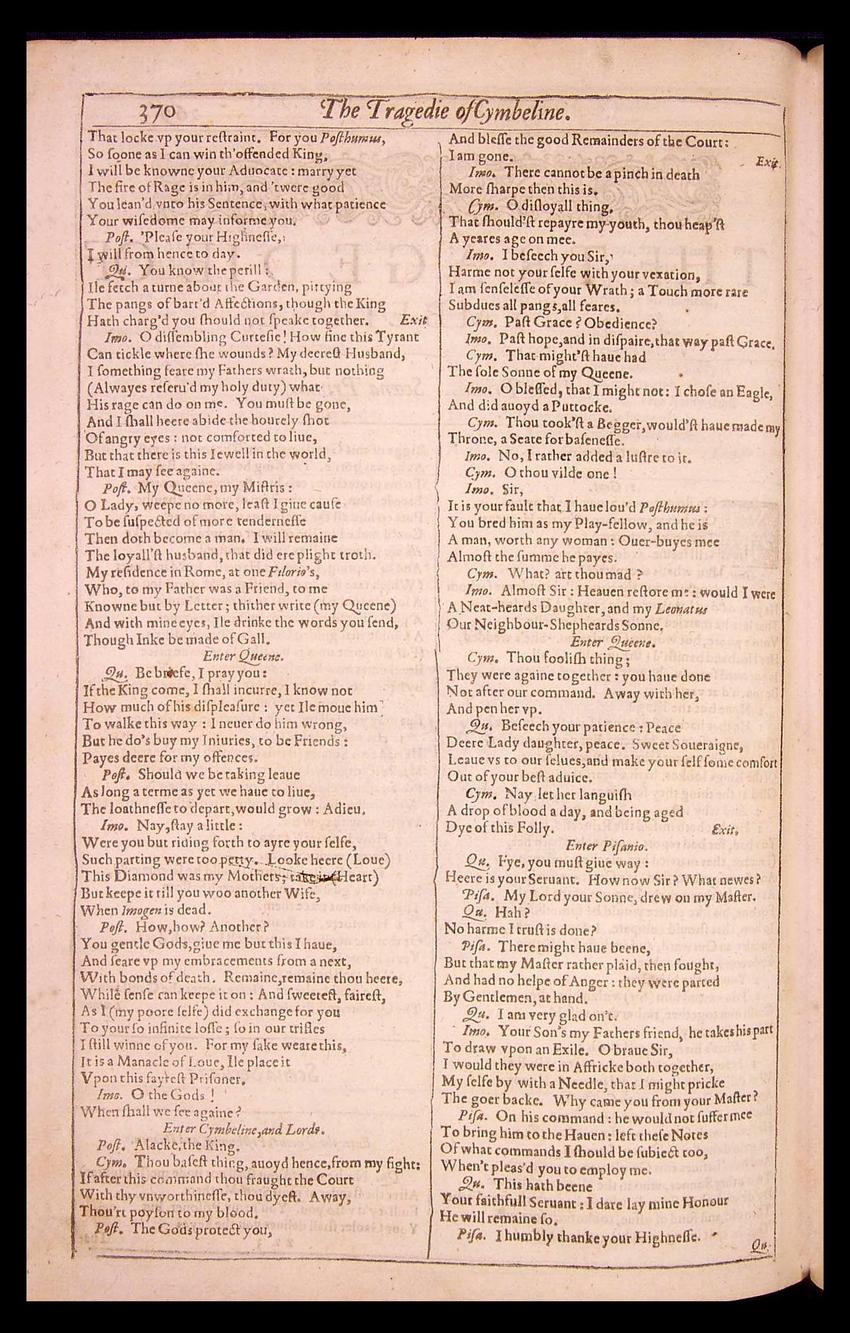 370
The Tragedie of Cymbeline.
That locke vp your reſtraint. For you Poſthumus,
So ſoone as I can win th'offended King,
I will be knowne your Aduocate : marry yet
The fire of Rage is in him, and 'twere good
You lean'd vnto his Sentence, with what patience
Your wiſedome may informe you.
Poſt. 'Pleaſe your Highneſſe,
I will from hence to day.
Qu. You know the perill :
Ile fetch a turne about the Garden, pittying
The pangs of barr'd Affections, though the King
Hath charg'd you ſhould not ſpeake together. Exit
Imo. O diſſembling Curteſie! How fine this Tyrant
Can tickle where ſhe wounds? My deereſt Husband,
I ſomething feare my Fathers wrath, but nothing
(Alwayes reſeru'd my holy duty) what
His rage can do on me. You muſt be gone,
And I ſhall heere abide the hourely ſhot
Of angry eyes : not comforted to liue,
But that there is this Iewell in the world,
That I may ſee againe.
Poſt. My Queene, my Miſtris :
O Lady, weepe no more, leaſt I giue cauſe
To be ſuſpected of more tenderneſſe
Then doth become a man. I will remaine
The loyall'ſt husband, that did ere plight troth.
My reſidence in Rome, at one Filorio's,
Who, to my Father was a Friend, to me
Knowne but by Letter; thither write (my Queene)
And with mine eyes, Ile drinke the words you ſend,
Though Inke be made of Gall.
Enter Queene.
Qu. Be briefe, I pray you :
If the King come, I ſhall incurre, I know not
How much of his diſpleaſure : yet Ile moue him
To walke this way : I neuer do him wrong,
But he do's buy my Iniuries, to be Friends :
Payes deere for my offences.
Poſt. Should we be taking leaue
As long a terme as yet we haue to liue,
The loathneſſe to depart, would grow : Adieu.
Imo. Nay, ſtay a little :
Were you but riding forth to ayre your ſelfe,
Such parting were too petty. Looke heere (Loue)
This Diamond was my Mothers; take it (Heart)
But keepe it till you woo another Wife,
When Imogen is dead.
Poſt. How, how? Another?
You gentle Gods, giue me but this I haue,
And ſeare vp my embracements from a next,
With bonds of death. Remaine, remaine thou heere,
While ſenſe can keepe it on : And ſweeteſt, faireſt,
As I (my poore ſelfe) did exchange for you
To your ſo infinite loſſe; ſo in our trifles
I ſtill winne of you. For my ſake weare this,
It is a Manacle of Loue, Ile place it
Vpon this fayreſt Priſoner.
Imo. O the Gods !
When ſhall we ſee againe?
Enter Cymbeline, and Lords.
Poſt. Alacke, the King.
Cym. Thou baſeſt thing, auoyd hence, from my fight:
If after this command thou fraught the Court
With thy vnworthineſſe, thou dyeſt. Away,
Thou'rt poyſon to my blood.
Poſt. The Gods protect you,
And bleſſe the good Remainders of the Court :
I am gone. Exit.
Imo. There cannot be a pinch in death
More ſharpe then this is.
Cym. O diſloyall thing,
That ſhould'ſt repayre my youth, thou heap'ſt
A yeares age on mee.
Imo. I beſeech you Sir,
Harme not your ſelfe with your vexation,
I am ſenſeleſſe of your Wrath; a Touch more rare
Subdues all pangs, all feares.
Cym. Paſt Grace? Obedience?
Imo. Paſt hope, and in diſpaire, that way paſt Grace.
Cym. That might'ſt haue had
The ſole Sonne of my Queene.
Imo. O bleſſed, that I might not : I choſe an Eagle,
And did auoyd a Puttocke.
Cym. Thou took'ſt a Begger, would'ſt haue made my
Throne, a Seate for baſeneſſe.
Imo. No, I rather added a luſtre to it.
Cym. O thou vilde one !
Imo. Sir,
It is your fault that I haue lou'd Poſthumus :
You bred him as my Play-fellow, and he is
A man, worth any woman : Ouer-buyes mee
Almoſt the ſumme he payes.
Cym. What? art thou mad ?
Imo. Almoſt Sir : Heauen reſtore me : would I were
A Neat-heards Daughter, and my Leonatus
Our Neighbour-Shepheards Sonne.
Enter Queene.
Cym. Thou fooliſh thing;
They were againe together : you haue done
Not after our command. Away with her,
And pen her vp.
Qu. Beſeech your patience : Peace
Deere Lady daughter, peace. Sweet Soueraigne,
Leaue vs to our ſelues, and make your ſelf ſome comfort
Out of your beſt aduice.
Cym. Nay let her languiſh
A drop of blood a day, and being aged
Dye of this Folly. Exit.
Enter Piſanio.
Qu. Fye, you muſt giue way :
Heere is your Seruant. How now Sir? What newes?
Piſa. My Lord your Sonne, drew on my Maſter.
Qu. Hah?
No harme I truſt is done?
Piſa. There might haue beene,
But that my Maſter rather plaid, then fought,
And had no helpe of Anger : they were parted
By Gentlemen, at hand.
Qu. I am very glad on't.
Imo. Your Son's my Fathers friend, he takes his part
To draw vpon an Exile. O braue Sir,
I would they were in Affricke both together,
My ſelfe by with a Needle, that I might pricke
The goer backe. Why came you from your Maſter?
Piſa. On his command : he would not ſuffer mee
To bring him to the Hauen : left theſe Notes
Of what commands I ſhould be ſubiect too,
When't pleas'd you to employ me.
Qu. This hath beene
Your faithfull Seruant : I dare lay mine Honour
He will remaine ſo.
Piſa. I humbly thanke your Highneſſe.
Qu.